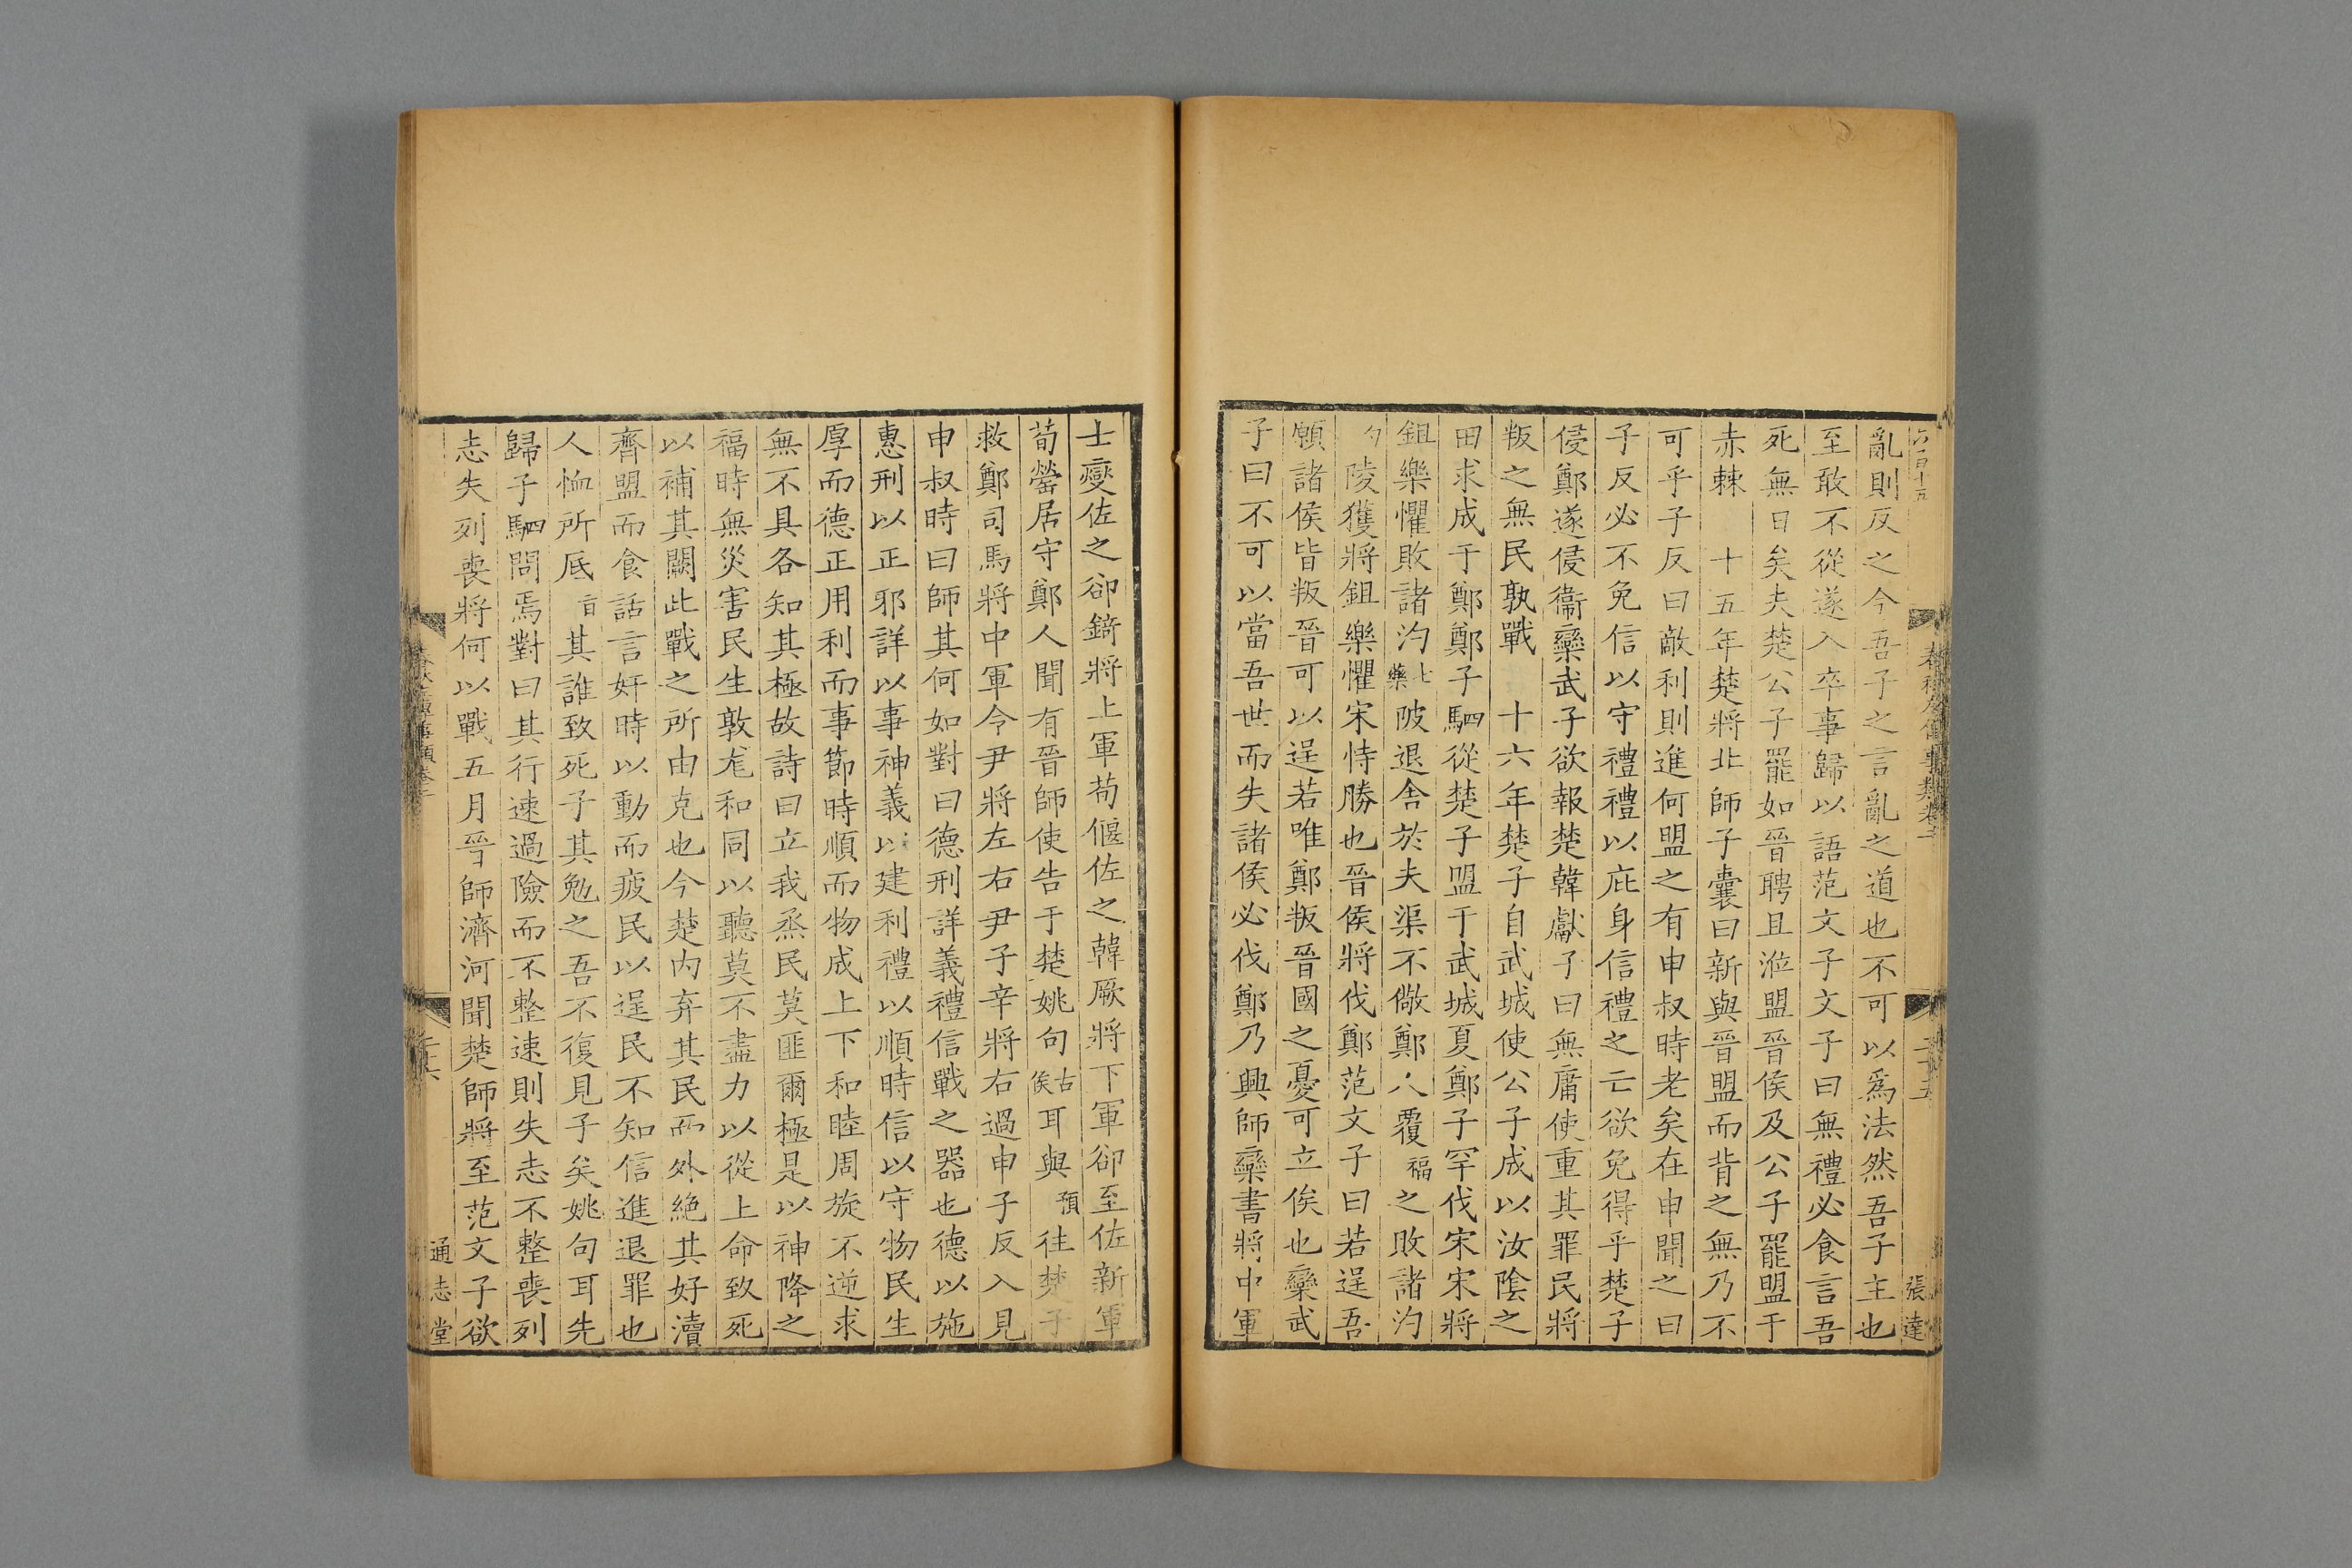 亂則反之今吾子之言亂之道也不可以爲法然吾子主也
至敢不從遂入卒事歸以語范文子文子曰無禮必食言吾
死無日矣夫楚公子罷如晉聘且涖盟晉侯及公子罷盟于
赤棘 十五年楚將北師子囊曰新與晉盟而背之無乃不
可乎子反曰敵利則進何盟之有申叔時老矣在申聞之曰
子反必不免信以守禮禮以庇身信禮之亡欲免得乎楚子
侵鄭遂侵衞欒武子欲報楚韓獻子曰無庸使重其罪民將
叛之無民孰戰 十六年楚子自武城使公子成以汝隂之
田求成于鄭鄭子駟從楚子盟于武城夏鄭子罕伐宋宋將
鉏樂懼敗諸汋七藥陂退舍於夫渠不儆鄭人覆福之敗諸汋
陵獲將鉏樂懼宋恃勝也晉侯將伐鄭范文子曰若逞吾
願諸侯皆叛晉可以逞若唯鄭叛晉國之憂可立俟也欒武
子曰不可以當吾世而失諸侯必伐鄭乃興師欒書將中軍
張達
士燮佐之郤錡將上軍荀偃佐之韓厥將下軍郤至佐新軍
荀罃居守鄭人聞有晉師使告于楚姚句古侯耳與預往楚子
救鄭司馬將中軍令尹將左右尹子辛將右過申子反入見
申叔時曰師其何如對曰德刑詳義禮信戰之器也德以施
惠刑以正邪詳以事神義以建利禮以順時信以守物民生
厚而德正用利而事節時順而物成上下和睦周旋不逆求
無不具各知其極故詩曰立我烝民莫匪爾極是以神降之
福時無災害民生敦尨和同以聽莫不盡力以從上命致死
以補其闕此戰之所由克也今楚内弃其民而外絶其好瀆
齊盟而食話言奸時以動而疲民以逞民不知信進退罪也
人恤所底㫖其誰致死子其勉之吾不復見子矣姚句耳先
歸子駟問焉對曰其行速過險而不整速則失志不整喪列
志失列喪將何以戰五月晉師濟河聞楚師將至范文子欲
通志堂